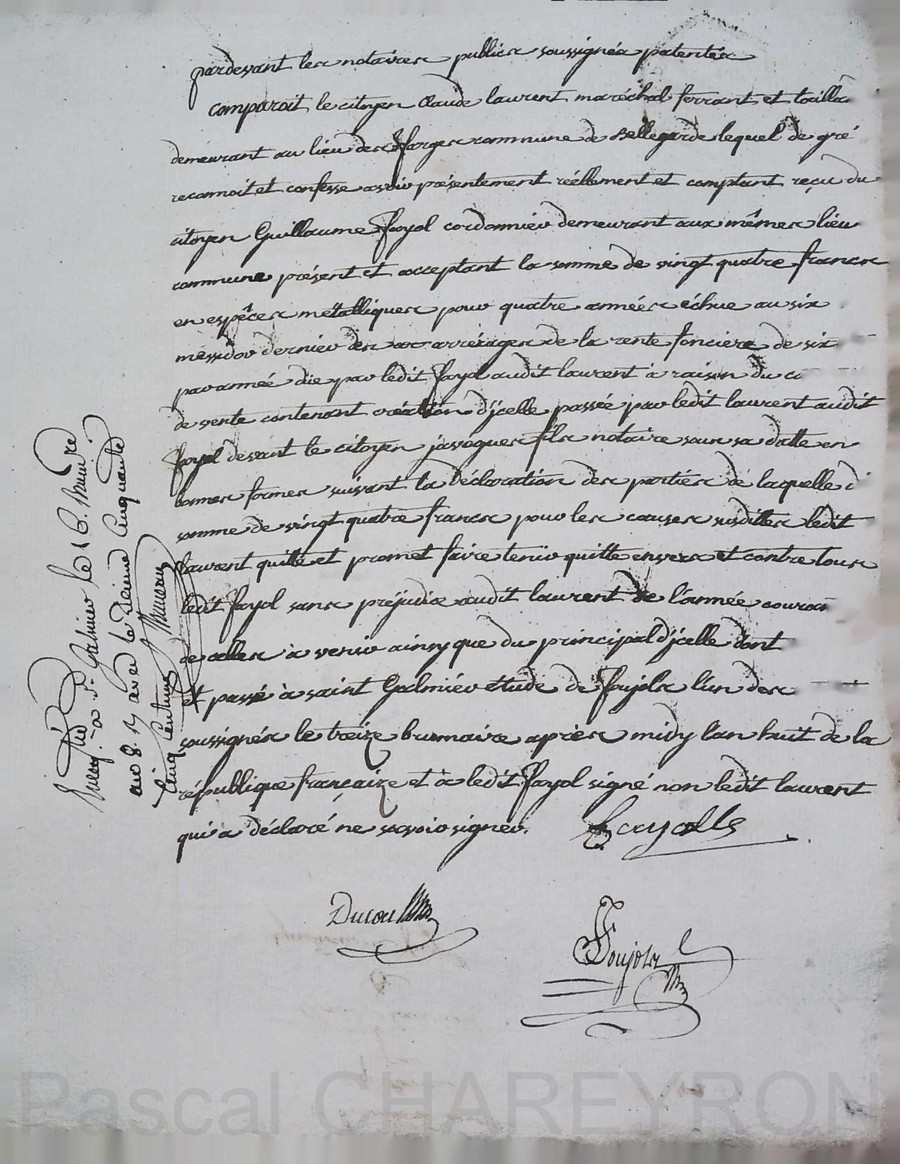 pardevant les notaires publics soussignés patentés
comparait le citoyen Claude laurent maréchal ferrant et tailla
demeurant au lieu des farges commune de Bellegarde lequel de gré
reconnoit et confesse avoir présentement réellement et comptant reçu du
citoyen Guillaume fayol cordonnier demeurant aux mêmes lieu
commune présent et acceptant la somme de vingt quatre francs
en espèces métalliques pour quatre années échue au six
messidor dernier des arrérages de la rente foncière de six
par année düe par ledit fayol audit laurent à raison du
de vente contenant création d'jcelle passée par ledit laurent audit
fayol devant le citoyen fils notaire sous sa datte en
bonnes formes suivant la déclaration des parties de laquelle
somme de vingt quatre francs pour les causes susdittes ledit
laurent quitte et promet faire tenir quitte envers et contre tous
ledit fayol sans préjudice audit laurent de l'année couran
de celles à venir ainsy que du principal d'jcelle dont
et passé à saint Galmier étude de foujols l'un des
soussignés le treize brumaire après midy l'an huit de la
république françaize et à ledit fayol signé non ledit laurent
qui a déclaré ne savoir signer.
fayolle
Foujols
à St Galmier le 16 brumaire
an 8